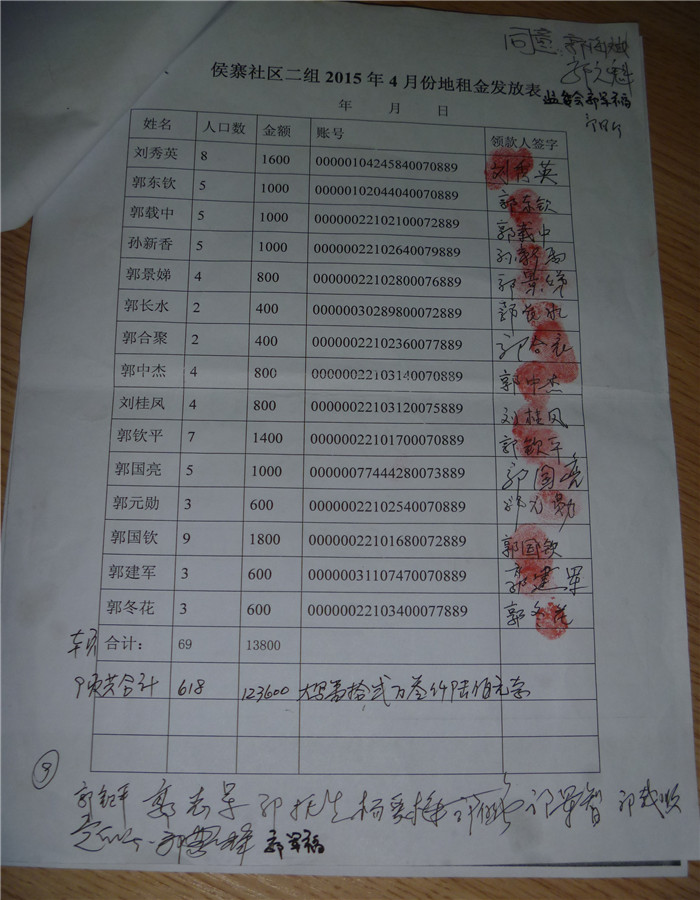 同意
侯寨社区二组 2015 年 4 月份地租金发放表 监委会 郭军福
年 月 日
姓名 人口数 金额 账号 领款人签字
刘秀英 8 1600 00000104245840070889 刘秀英
郭东钦 5 1000 00000102044040070889 郭东钦
郭载中 5 1000 00000022102100072889 郭载中
孙新香 5 1000 00000022102640079889 孙新香
郭景娣 4 800 00000022102800076889 郭景娣
郭长水 2 400 00000030289800072889 郭长水
郭合聚 2 400 00000022102360077889 郭合聚
郭中杰 4 800 00000022103140070889 郭中杰
刘桂凤 4 800 00000022103120075889 刘桂凤
郭钦平 7 1400 00000022101700070889 郭钦平
郭国亮 5 1000 00000077444280073889 郭国亮
郭元勋 3 600 00000022102540070889 郭元勋
郭国钦 9 1800 00000022101680072889 郭国钦
郭建军 3 600 00000031107470070889 郭建军
郭冬花 3 600 00000022103400077889 郭冬花
合计： 69 13800
合计 618 123600 大写壹拾贰万叁仟陆佰元
③
郭钦平
郭军福